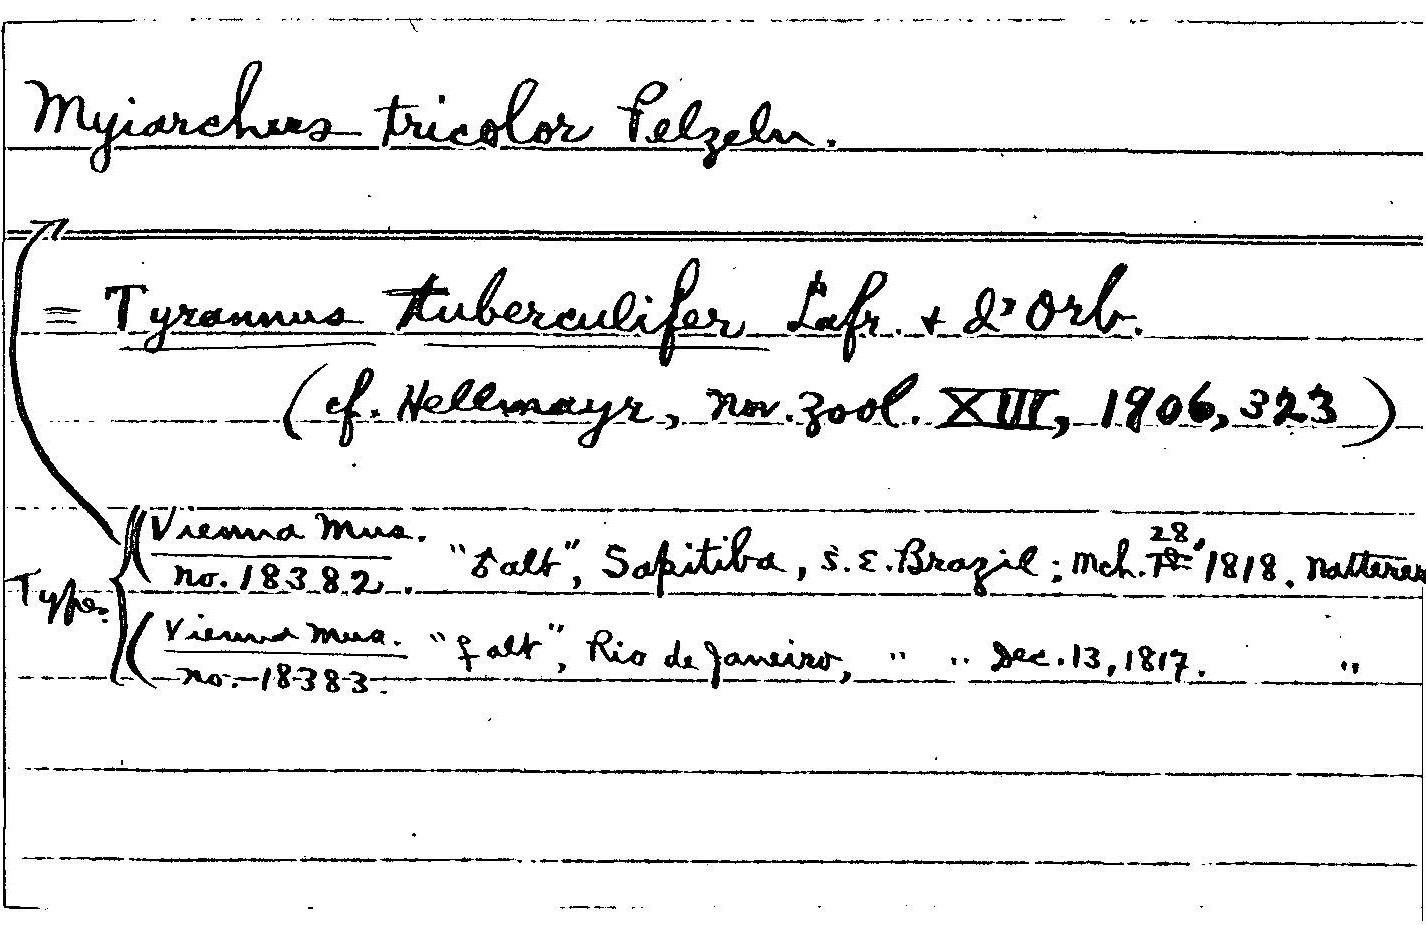 Myiarchus tricolor Pelzeln.
= Tyrannus tuberculifer Lafr. + d'Orb.
(cf. Hellmayr, Nov. Zool. XIII, 1906, 323)
Types
Vienna Mus. no. 18382. "♂ alt", Sapitiba, S.E. Brazil; Mch. 28, 1818. Natterer
Vienna Mus. no. 18383. "♀ alt", Rio de Janeiro, " " Dec. 13, 1817. "